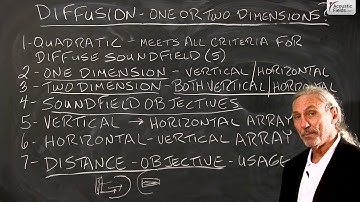 DIFFUSION - ONE OR TWO DIMENSIONS?
Acoustic
Fields
1-QUADRATIC - MEETS ALL CRITERIA FOR
DIFFUSE SOUNDFIELD (5)
2- ONE DIMENSION - VERTICAL/HORIZONTAL
3- TWO DIMENSION - BOTH VERTICAL/HORIZONTAL
4- SOUNDFIELD OBJECTIVES
5- VERTICAL → HORIZONTAL ARRAY
6- HORIZONTAL-VERTICAL ARRAY
7- DISTANCE - OBJECTIVE - USAGE